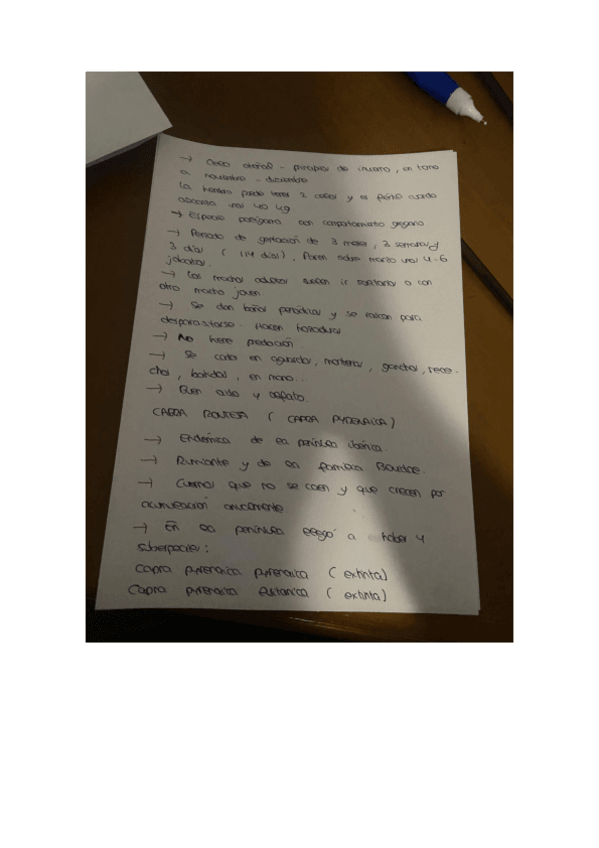 → Celo otoñal - principios de invierno, en torno
a noviembre - diciembre
La hembra puede tener 2 celos y es fértil cuando
alcanza unos 40 kg
→ Especie polígama con comportamiento gregario
→ Periodo de gestación de 3 meses, 3 semanas y
3 días ( 114 días). Paren sobre marzo unos 4-6
jabatos.
→ Los machos adultos suelen ir solitarios o con
otro macho joven
→ Se dan baños periódicos y se rascan para
desparasitarse. Hacen hozaduras
→ No tiene predación.
→ Se caza en aguardos, monterias, ganchos, rece-
chos, batidas, en mano..
→ Buen oido y olfato.
CABRA MONTESA ( CAPRA PYRENAICA )
→ Endémica de la península ibérica.
→ Rumiante y de la familia Bovidae.
→ Cuernos que no se caen y que crecen por
acumulación anualmente.
→ En la península llegó a haber 4
subespecies:
Capra pyrenaica pyrenaica ( extinta)
Capra pyrenaica lusitanica ( extinta)